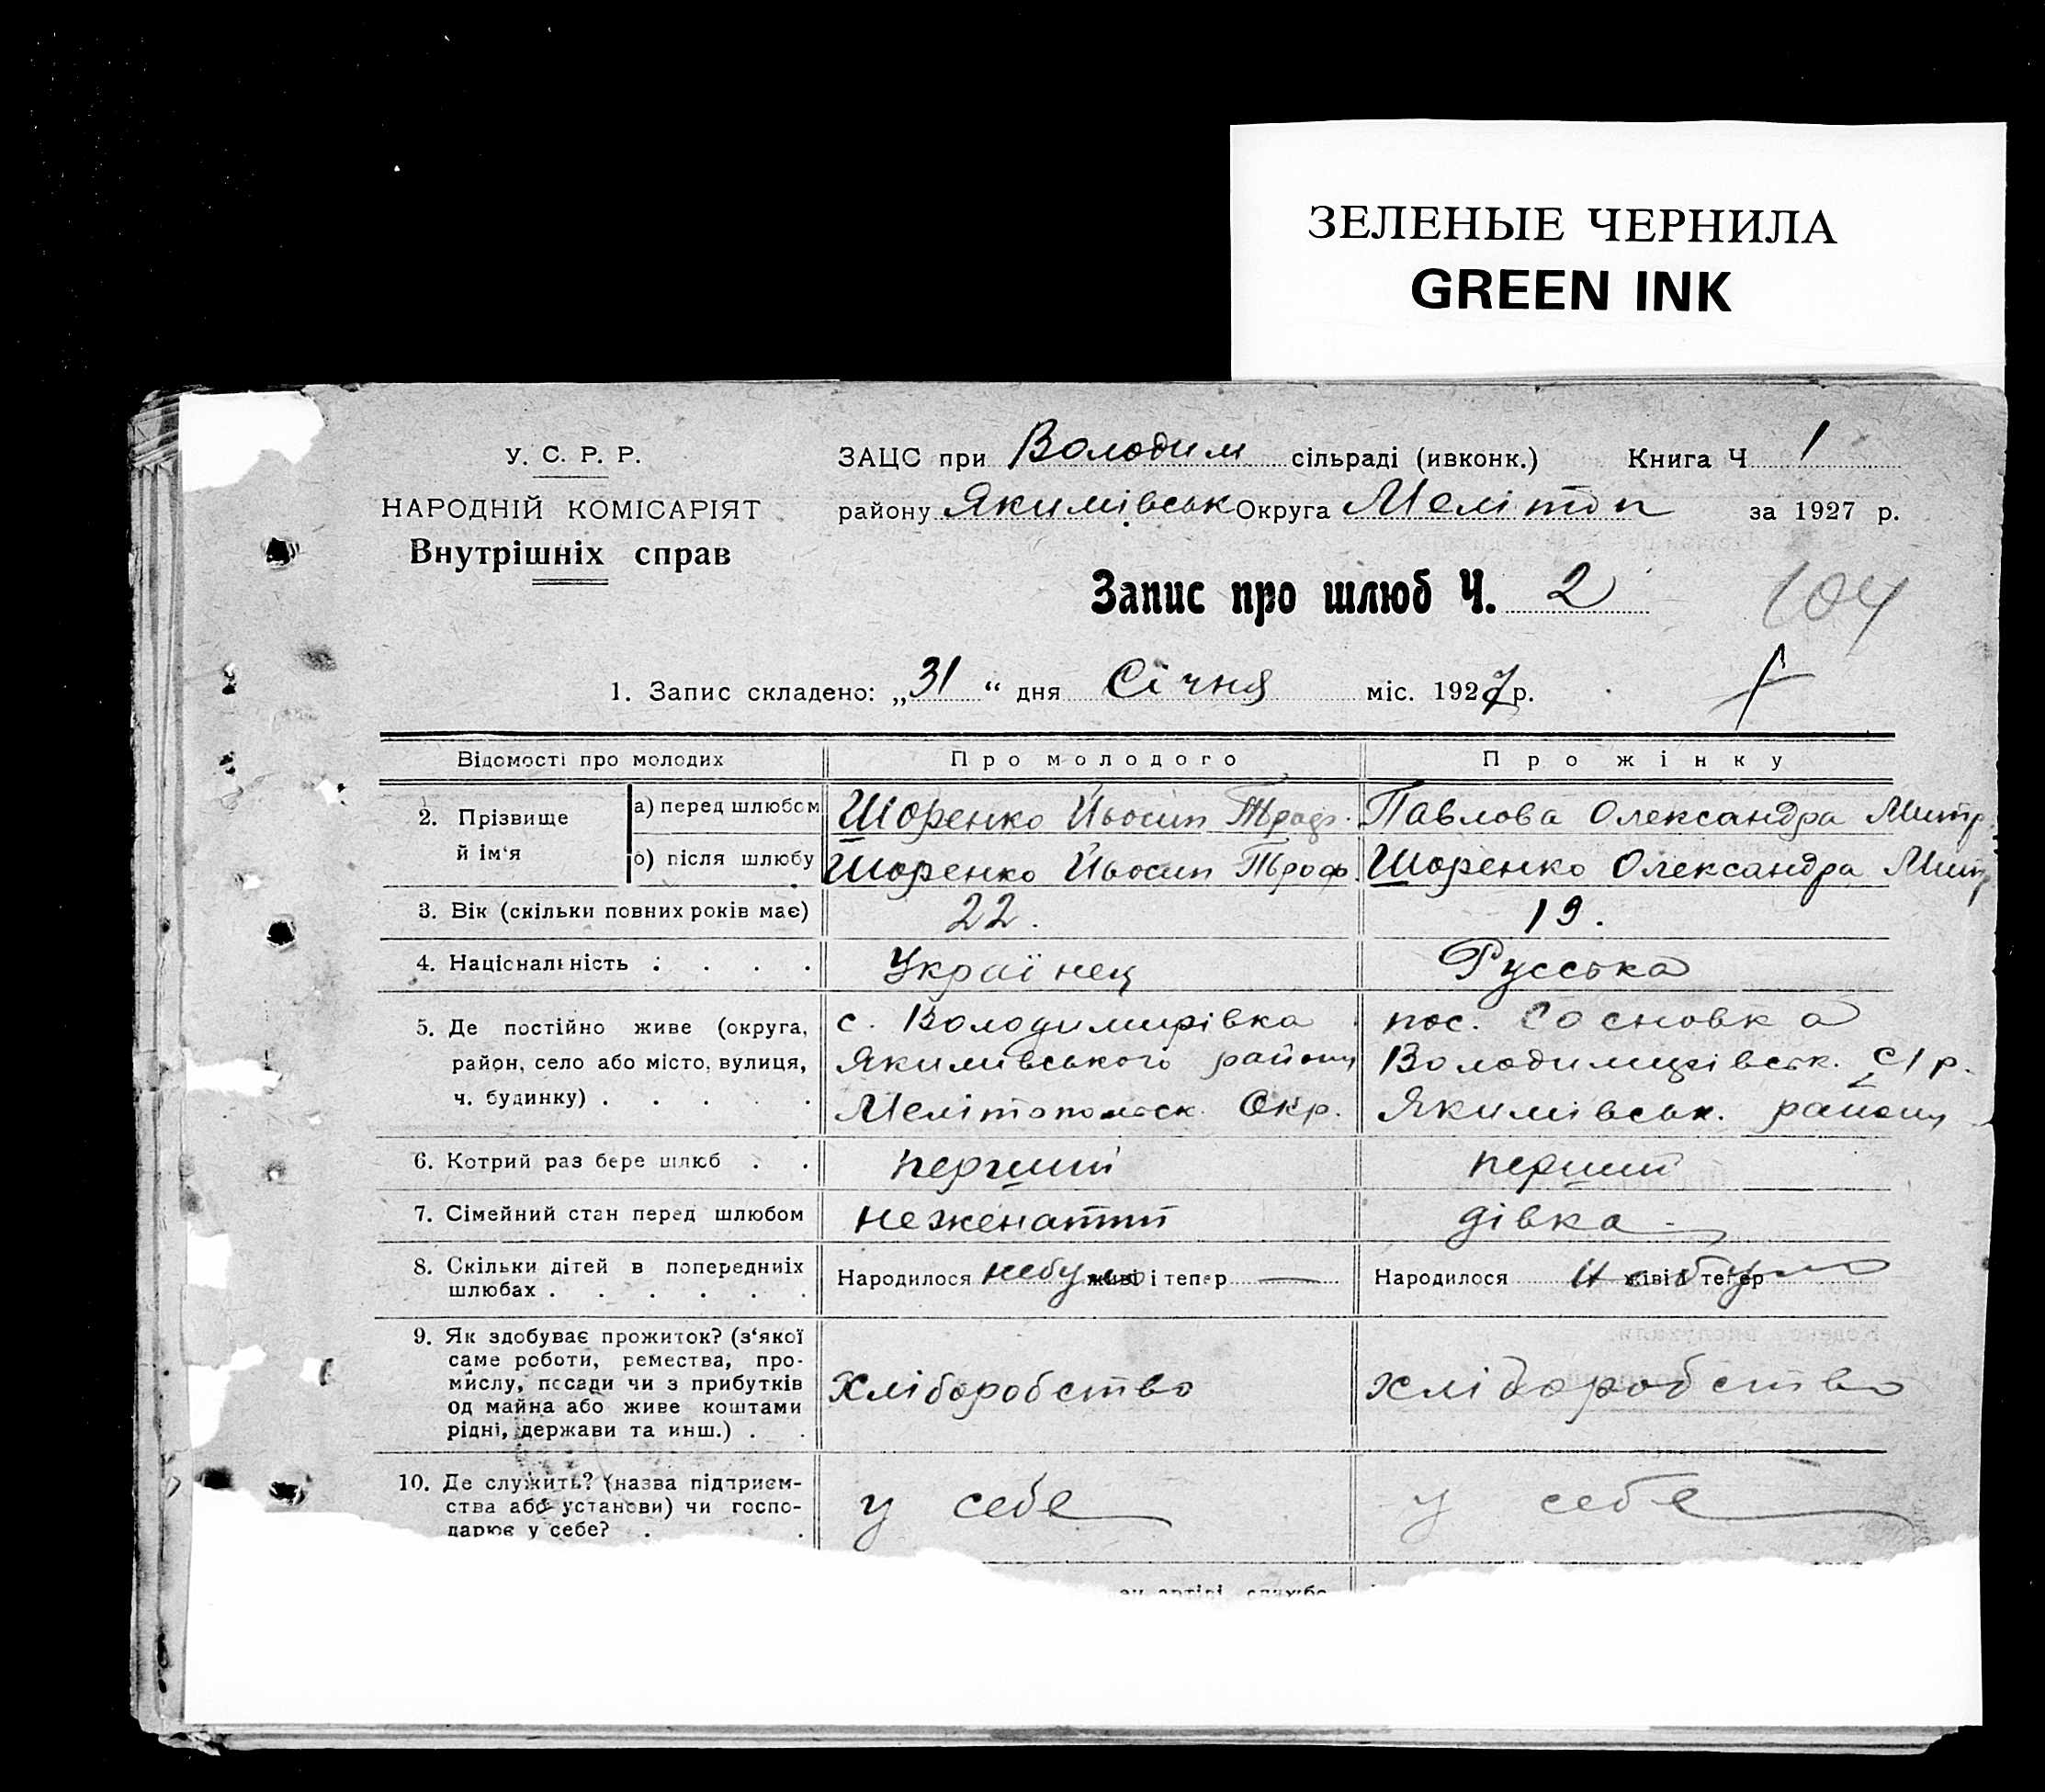 ЗЕЛЕНЫЕ ЧЕРНИЛА
GREEN INK
У. С. Р. Р.
НАРОДНІЙ КОМІСАРІЯТ
Внутрішніх справ
ЗАЦС при Володим сільраді (ивконк.) Книга Ч 1
району Якимівськ Округа Мелітоп за 1927 р.
Запис про шлюб Ч. 2
104
1. Запис складено: „31“ дня Січня міс. 1927 р.
Відомості про молодих Про молодого Про жінку
2. Прізвище й ім'я
а) перед шлюбом Шоренко Йьосип Троф. Павлова Олександра Митр.
б) після шлюбу Шоренко Йьосип Троф. Шоренко Олександра Митр
3. Вік (скільки повних років має) 22. 19.
4. Національність Українец Русська
5. Де постійно живе (округа, район, село або місто, вулиця, ч. будинку)
с. Володимирівка
Якимівського району
Мелітопольск Окр.
пос. Сосновка
Володимирівськ. с/р.
Якимівськ. району
6. Котрий раз бере шлюб перший перший
7. Сімейний стан перед шлюбом нежинатий дівка
8. Скільки дітей в попередніх шлюбах Народилося небуло живі і тепер — Народилося небуло живі й тепер
9. Як здобуває прожиток? (з'якої
саме роботи, ремества, про-
мислу, посади чи з прибутків
од майна або живе коштами
рідні, держави та инш.)
Хліборобство
хліборобство
10. Де служить? (назва підприєм-
ства або установи) чи госпо-
дарює у себе?
у себе
у себе